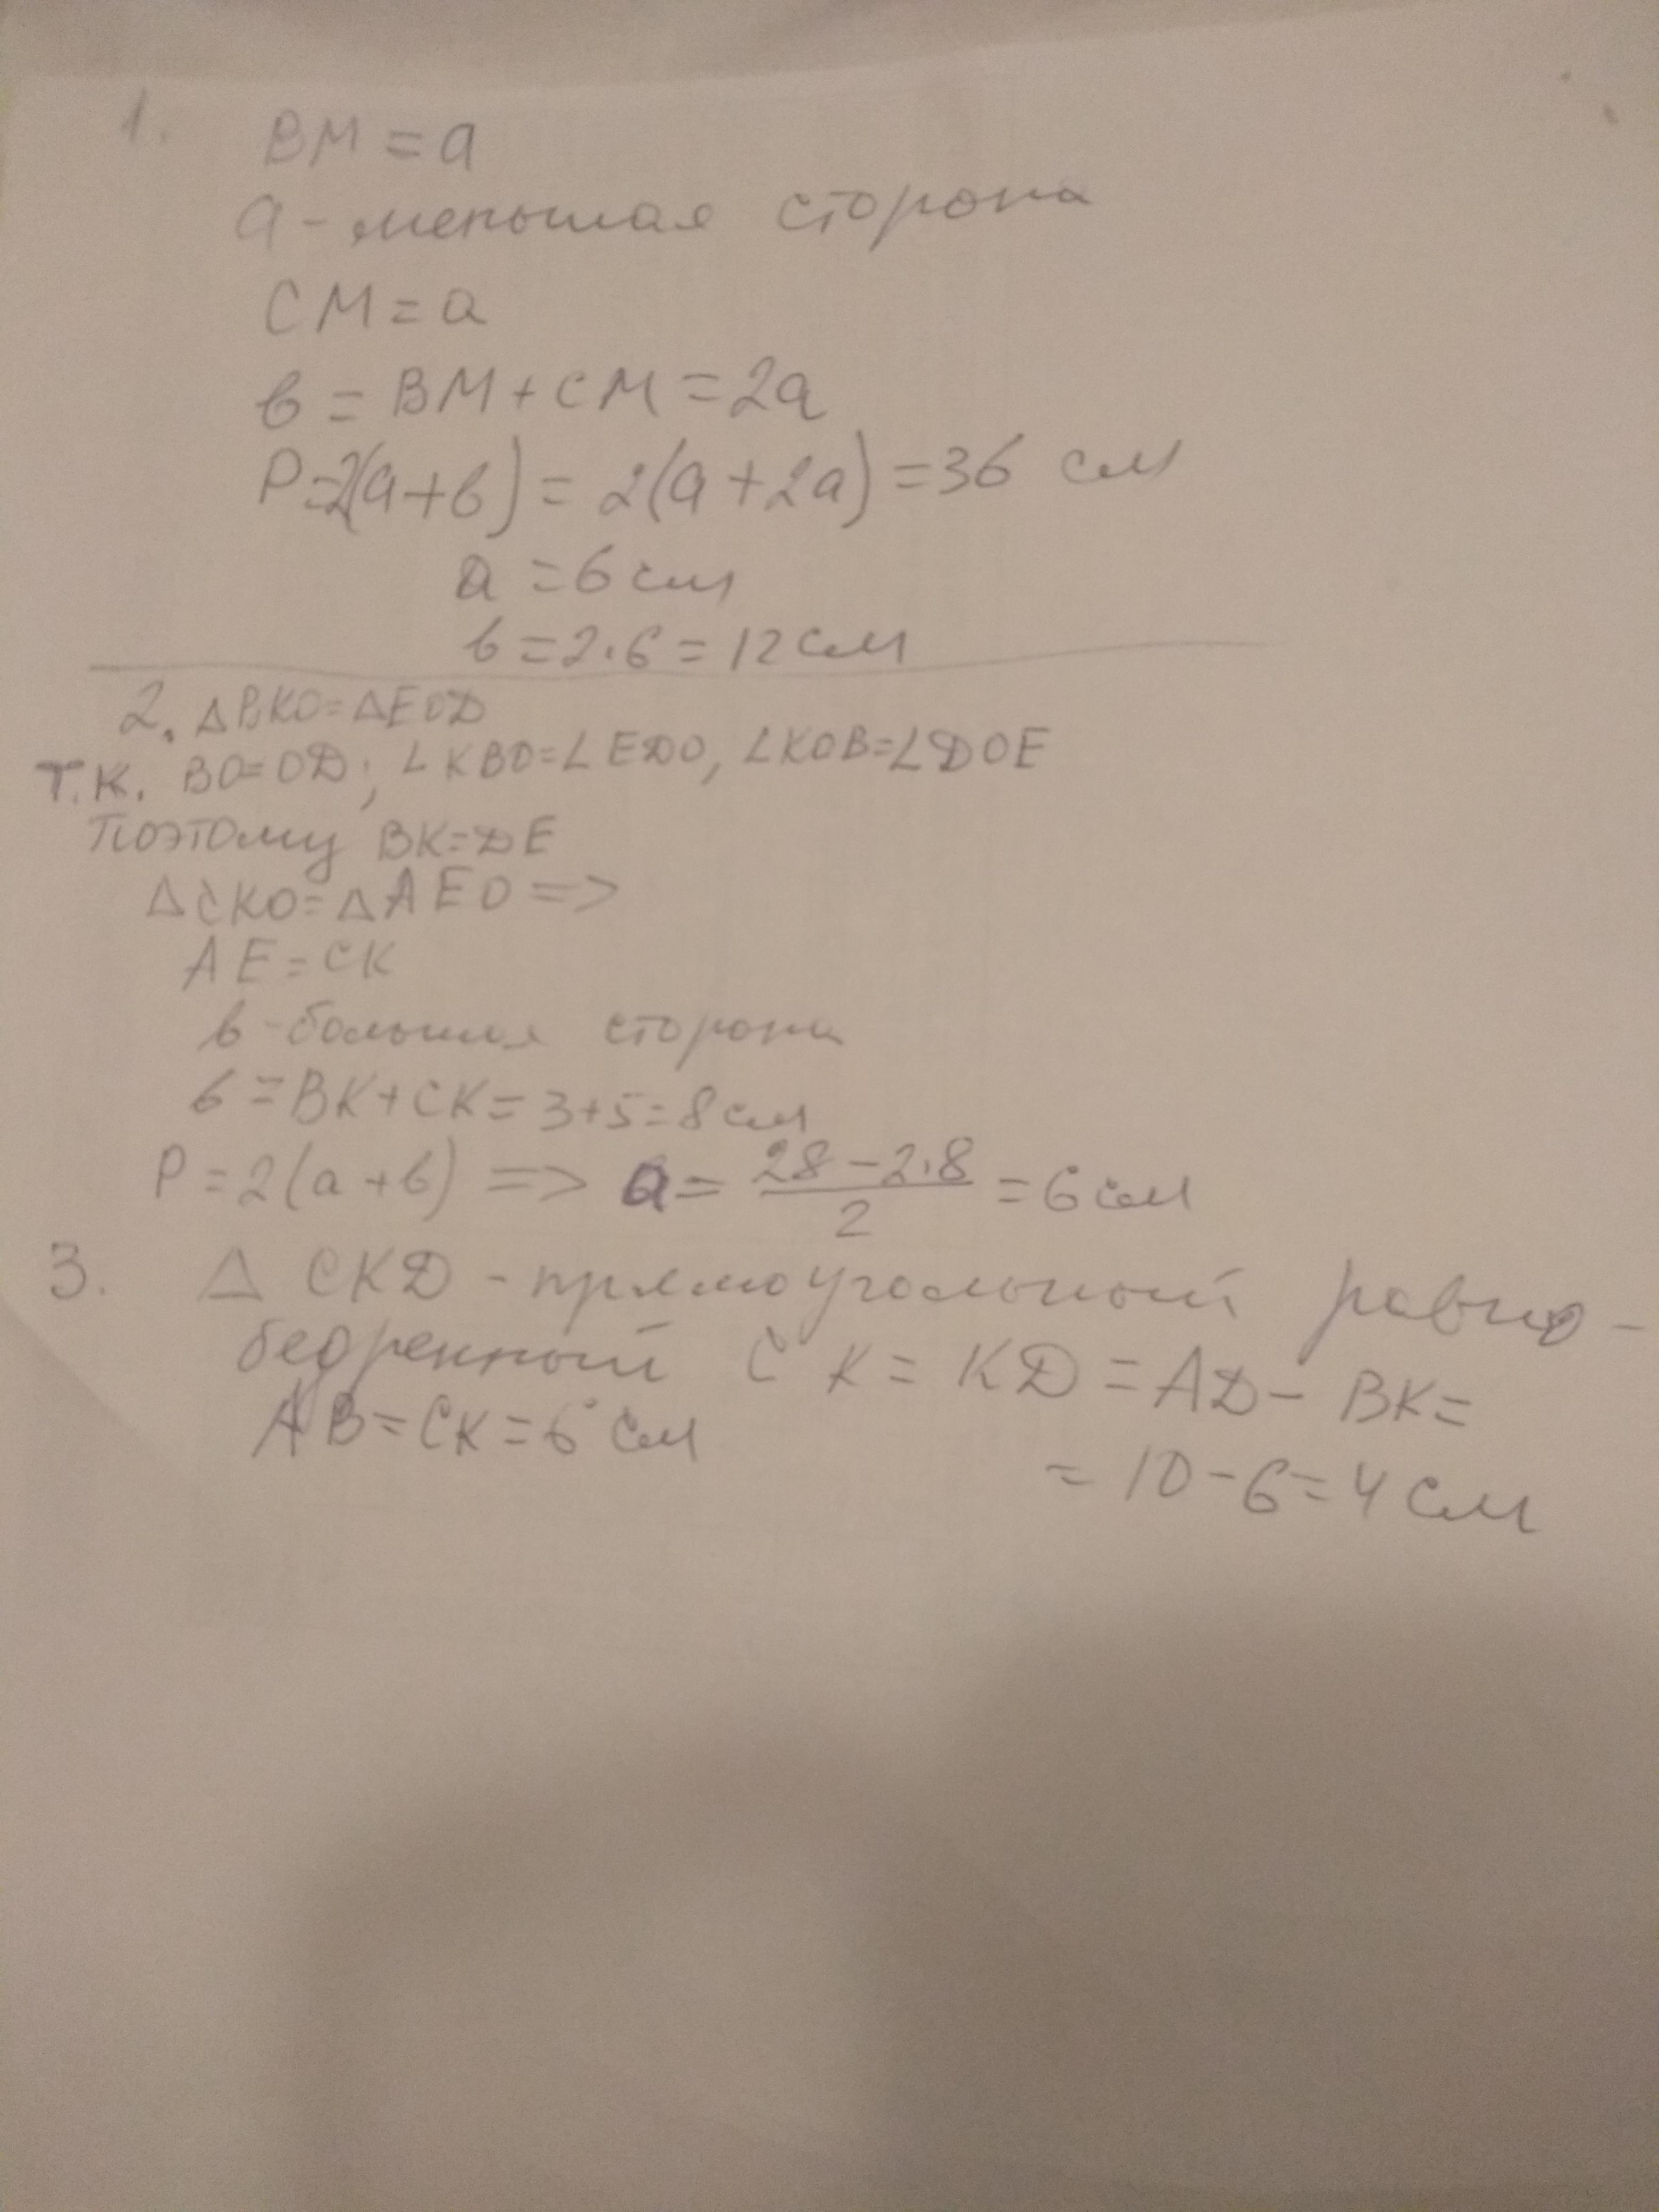 1. BM = a
a - меньшая сторона
CM = a
в = BM + CM = 2a
P=2(a+в) = 2(a+2a) = 36 см
a = 6 см
в = 2·6 = 12 см
2. △BKO=△EOD
т.к. BO=OD; ∠KBO=∠EDO, ∠KOB=∠DOE
Поэтому BK=DE
△CKO=△AEO =>
AE=CK
в - большая сторона
в = BK+CK = 3+5=8 см
P=2(a+в) => a= (28-2·8)/2 = 6 см
3. △ CKD - прямоугольный равно-
бедренный CK = KD = AD - BK =
AB=CK=6 см
= 10-6=4 см